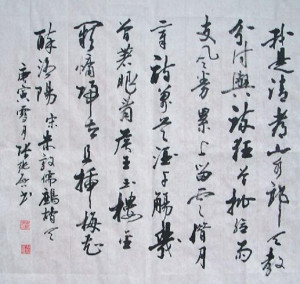 我是清都山水郎天教
分付與疏狂曾批給雨
支風券累上留雲借月
章詩萬首酒千觴幾
曾著眼看侯王玉樓金
闕慵歸去且插梅花
醉洛陽 宋朱敦儒鷓鴣天
庚寅雪月張